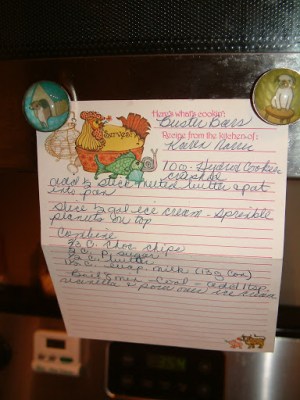 Here's what's cookin'
Buster Bars
Serves
Recipe from the kitchen of:
Karen
100 - Hydrox Cookies
crushed
add ½ stick melted butter & pat
into pan
Slice ½ gal ice cream - Sprinkle
peanuts on top
Combine
⅔ C. Choc chips
2 C. P. sugar
C. butter
C. evap. milk (13 oz can)
Boil 8 min - Cool - add 1 tsp.
vanilla & pour over ice cream